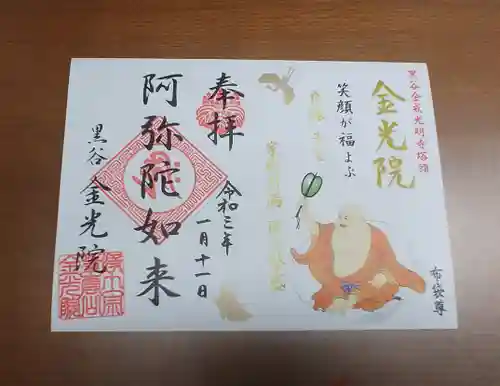 黒谷金戒光明寺塔頭
金光院
笑顔が福よぶ
布袋尊
奉拝
令和三年
一月十一日
阿弥陀如来
黒谷
金光院